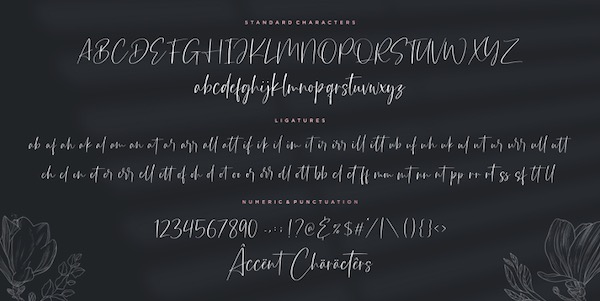 STANDARD CHARACTERS
ABCDEFGHIJKLMNOPQRSTUVWXYZ
abcdefghijklmnopqrstuvwxyz
LIGATURES
ab af ah ak al am an at ar arr all att if ik il im it ir irr ill itt ub uf uh uk ul ut ur urr ull utt
ch cl en et er err ell ett of oh ol ot oo or orr oll ott bb cl ct ff mm mt nn nt pp rr rt ss sf tt ll
NUMERIC & PUNCTUATION
1234567890 .,:; !?@&%$#/|\(){}<>
Âccënt Chäräctêrs